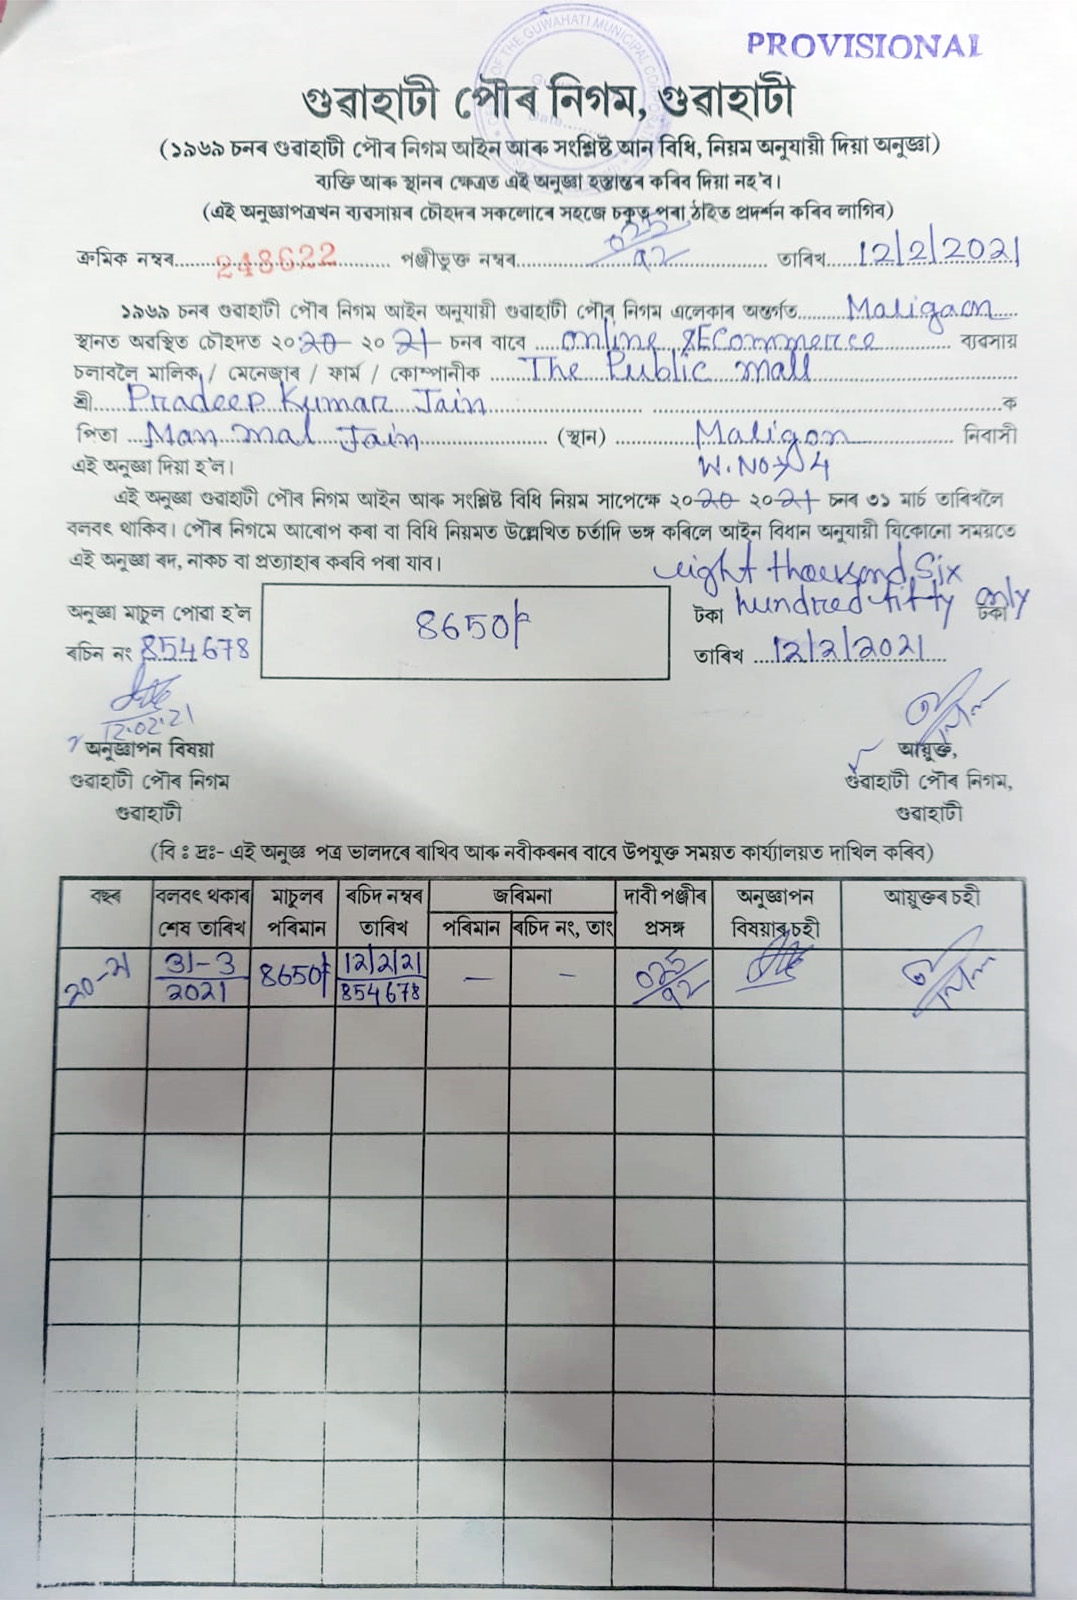 PROVISIONAL
OF THE GUWAHATI MUNICIPAL
গুৱাহাটী পৌৰ নিগম, গুৱাহাটী
(১৯৬৯ চনৰ গুৱাহাটী পৌৰ নিগম আইন আৰু সংশ্লিষ্ট আন বিধি, নিয়ম অনুযায়ী দিয়া অনুজ্ঞা)
ব্যক্তি আৰু স্থানৰ ক্ষেত্ৰত এই অনুজ্ঞা হস্তান্তৰ কৰিব দিয়া নহ'ব।
(এই অনুজ্ঞাপত্ৰখন ব্যবসায়ৰ চৌহদৰ সকলোৱে সহজে চকুত পৰা ঠাইত প্ৰদৰ্শন কৰিব লাগিব)
ক্ৰমিক নম্বৰ 248622 পঞ্জীভুক্ত নম্বৰ 025/92 তাৰিখ 12/2/2021
১৯৬৯ চনৰ গুৱাহাটী পৌৰ নিগম আইন অনুযায়ী গুৱাহাটী পৌৰ নিগম এলেকাৰ অন্তৰ্গত Maligaon
স্থানত অৱস্থিত চৌহদত ২০20 ২০21 চনৰ বাবে online &ECommerce ব্যৱসায়
চলাবলৈ মালিক / মেনেজাৰ / ফাৰ্ম / কোম্পানীক The Public mall
শ্ৰী Pradeep Kumar Jain ক
পিতা Man mal Jain (স্থান) Maligon নিবাসী
এই অনুজ্ঞা দিয়া হ'ল। W.No→4
এই অনুজ্ঞা গুৱাহাটী পৌৰ নিগম আইন আৰু সংশ্লিষ্ট বিধি নিয়ম সাপেক্ষে ২০20 ২০21 চনৰ ৩১ মাৰ্চ তাৰিখলৈ
বলবৎ থাকিব। পৌৰ নিগমে আৰোপ কৰা বা বিধি নিয়মত উল্লেখিত চৰ্তাদি ভঙ্গ কৰিলে আইন বিধান অনুযায়ী যিকোনো সময়তে
এই অনুজ্ঞা ৰদ, নাকচ বা প্ৰত্যাহাৰ কৰবি পৰা যাব।
eight thousand six
অনুজ্ঞা মাচুল পোৱা হ'ল 8650/- টকা hundred fifty only টকা
ৰচিন নং 854678 তাৰিখ 12/2/2021
12.02.21
অনুজ্ঞাপন বিষয়া আয়ুক্ত,
গুৱাহাটী পৌৰ নিগম গুৱাহাটী পৌৰ নিগম,
গুৱাহাটী গুৱাহাটী
(বি ঃ দ্ৰঃ- এই অনুজ্ঞ পত্ৰ ভালদৰে ৰাখিব আৰু নবীকৰনৰ বাবে উপযুক্ত সময়ত কাৰ্য্যালয়ত দাখিল কৰিব)
বছৰ বলবৎ থকাৰ মাচুলৰ ৰচিদ নম্বৰ জৰিমনা দাবী পঞ্জীৰ অনুজ্ঞাপন আয়ুক্তৰ চহী
শেষ তাৰিখ পৰিমান তাৰিখ পৰিমান ৰচিদ নং, তাং প্ৰসঙ্গ বিষয়াৰ চহী
20-21 31-3 8650/- 12/2/21 — — 025/92
2021 854678